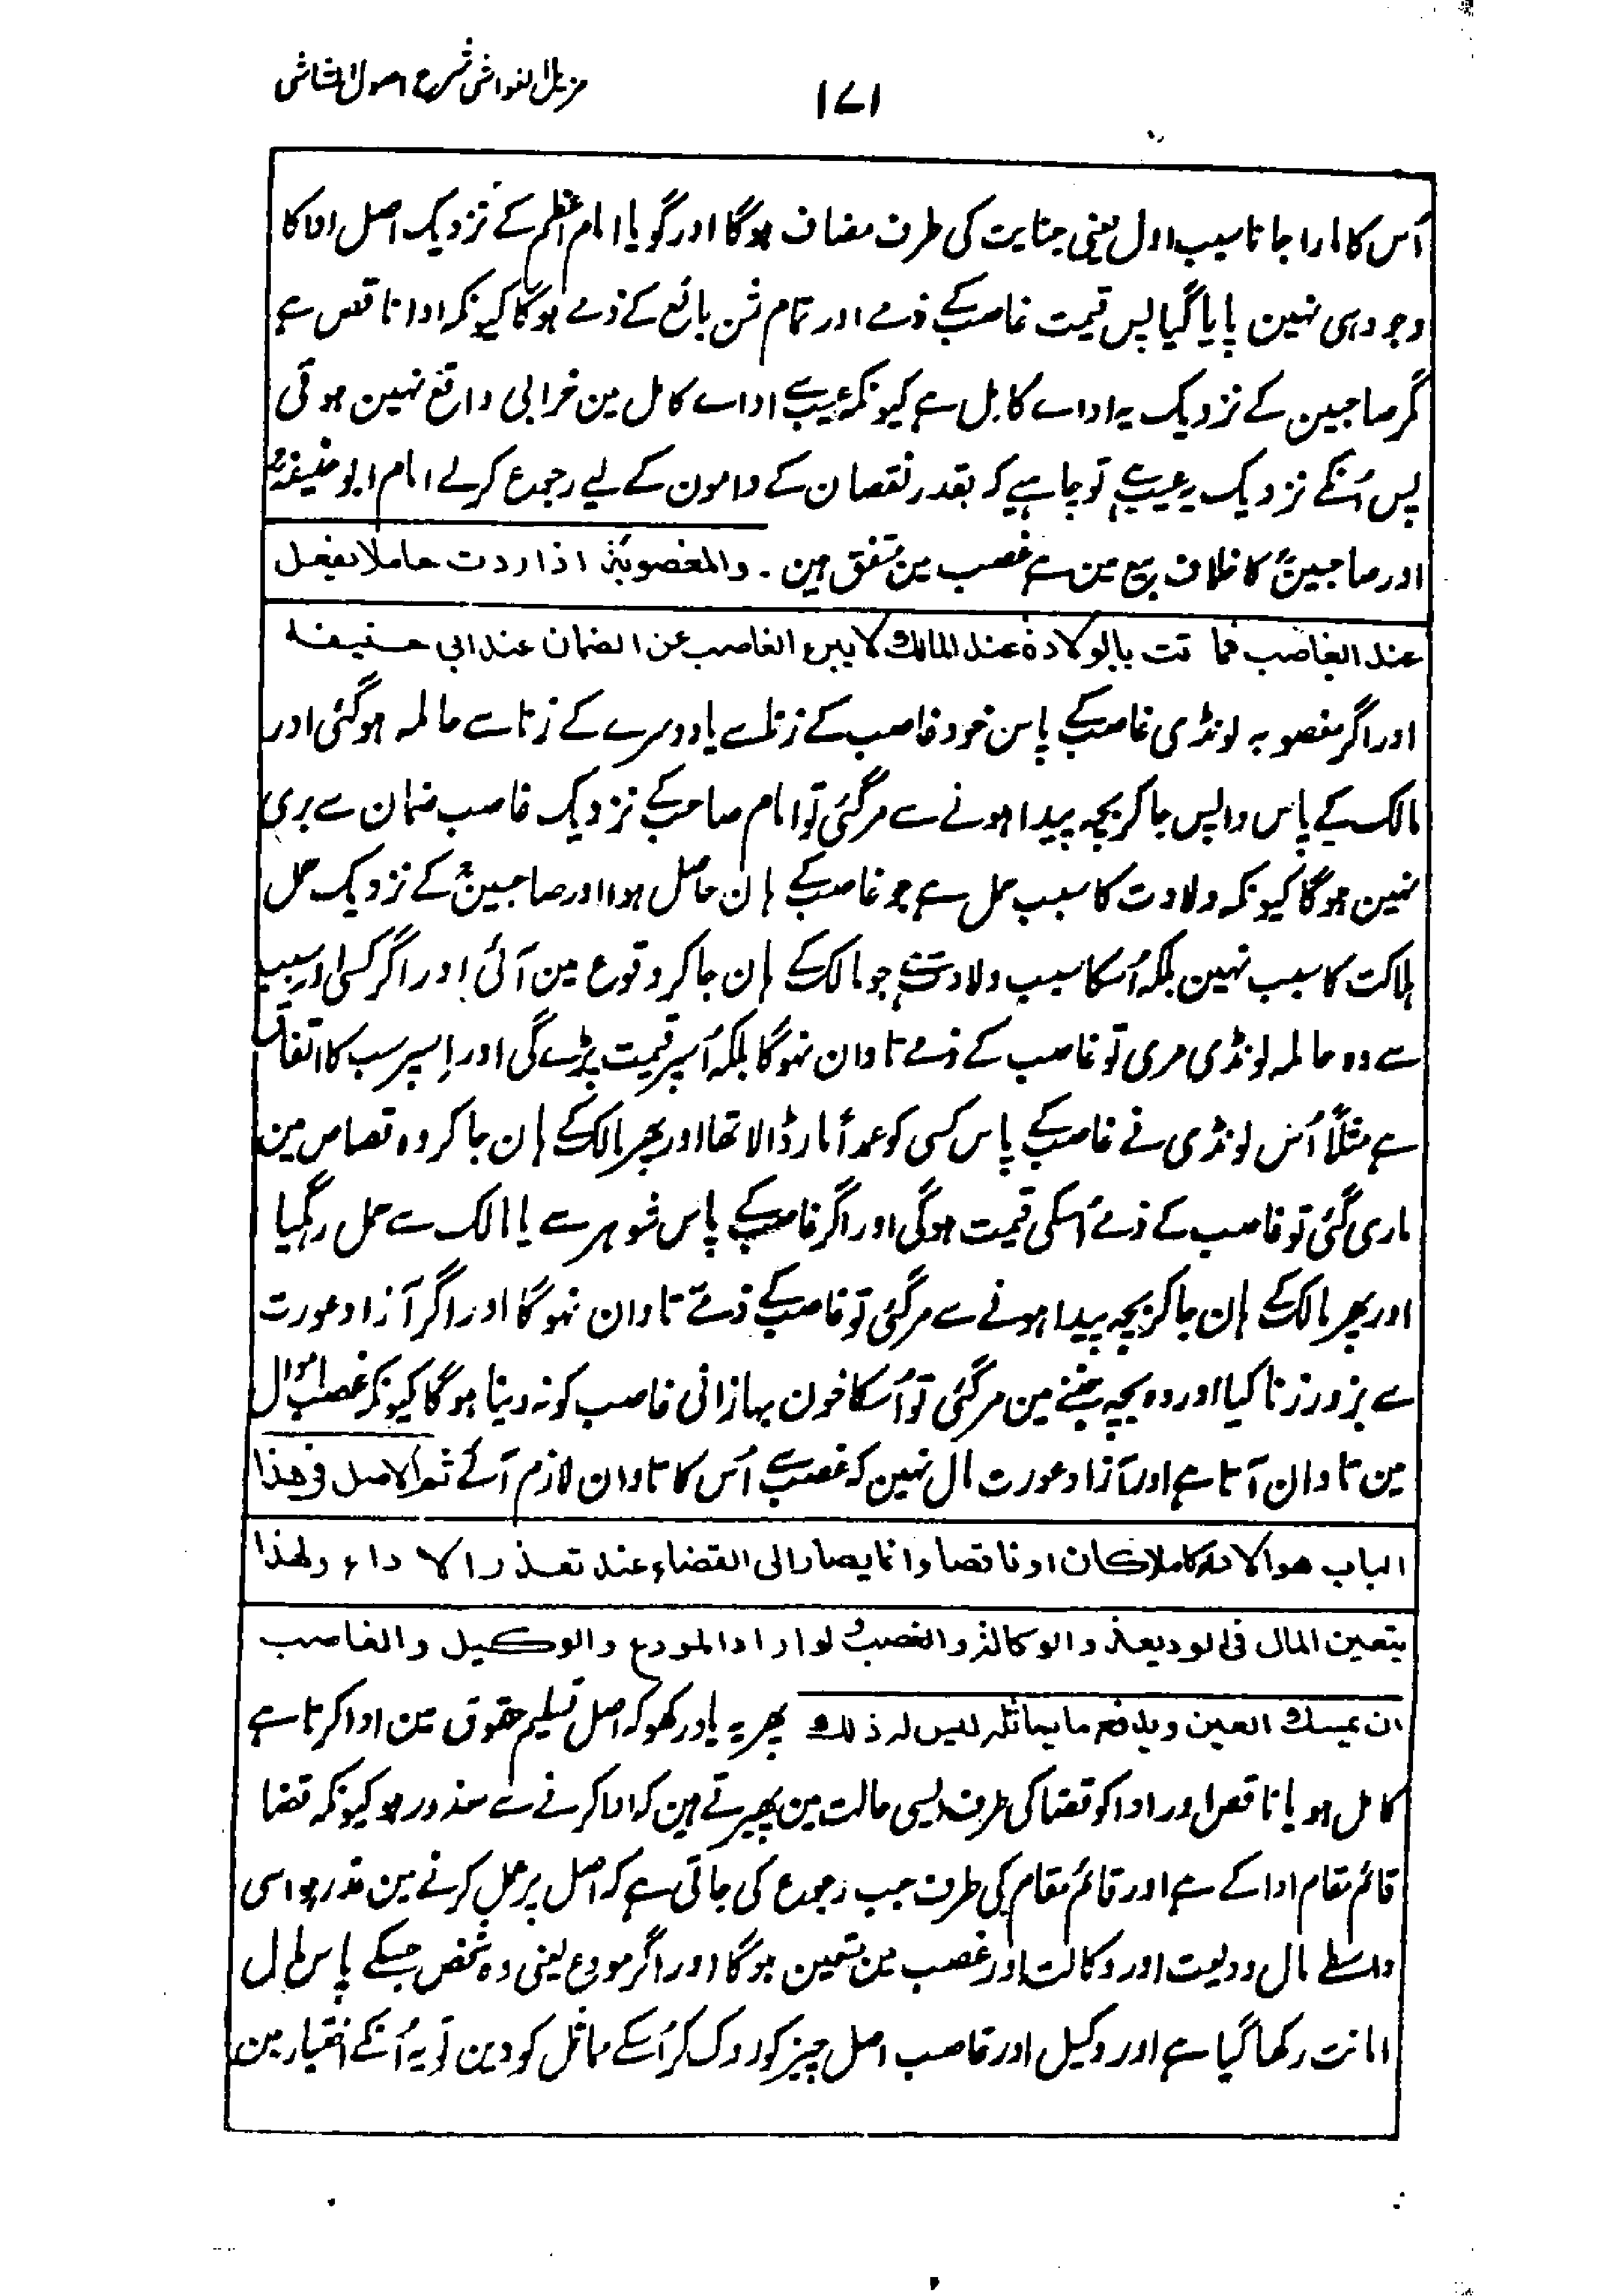 مزیل الغواشی شرح اصول الشاشی
۱۷۱
اُس کا مارا جانا سبب اول یعنی جنایت کی طرف مضاف ہوگا اور گویا امام اعظم کے نزدیک اصل ادا کا
وجود ہی نہین پایا گیا پس قیمت غاصب کے ذمے اور تمام ثمن بائع کے ذمے ہوگا کیونکہ ادا ناقص ہے
مگر صاحبین کے نزدیک یہ اداے کامل ہے کیونکہ عیب سے اداے کامل مین خرابی واقع نہین ہوتی
پس اُنکے نزدیک یہ عیب ہے تو چاہیے کہ بقدر نقصان کے دامون کے لیے رجوع کرلے امام ابو حنیفہؒ
اور صاحبینؒ کا خلاف بیع مین ہے غصب مین متفق ہین ۔ والمغصوبۃ اذا ردت حاملا بفعل
عند الغاصب فماتت بالولادۃ عند المالک لا یبرء الغاصب عن الضمان عند ابی حنیفہ
اور اگر مغصوبہ لونڈی غاصب کے پاس خود غاصب کے زنا سے یا دوسرے کے زنا سے حاملہ ہوگئی اور
مالک کے پاس واپس جاکر بچہ پیدا ہونے سے مرگئی تو امام صاحب کے نزدیک غاصب ضمان سے بری
نہین ہوگا کیونکہ ولادت کا سبب حمل ہے جو غاصب کے ہان حاصل ہوا اور صاحبینؒ کے نزدیک حمل
ہلاکت کا سبب نہین بلکہ اُسکا سبب ولادت ہے جو مالک کے ہان جاکر وقوع مین آئی اور اگر کسی اور سبب
سے وہ حاملہ لونڈی مری تو غاصب کے ذمے تاوان نہوگا بلکہ اُسپر قیمت پڑے گی اور اِسپر سب کا اتفاق
ہے مثلاً اُس لونڈی نے غاصب کے پاس کسی کو عمداً مار ڈالا تھا اور پھر مالک کے ہان جاکر وہ قصاص مین
ماری گئی تو غاصب کے ذمے اُسکی قیمت ہوگی اور اگر غاصب کے پاس شوہر سے یا مالک سے حمل رہگیا
اور پھر مالک کے ہان جاکر بچہ پیدا ہونے سے مرگئی تو غاصب کے ذمے تاوان نہوگا اور اگر آزاد عورت
سے بزور زنا کیا اور وہ بچہ جننے مین مرگئی تو اُسکا خون بہا زانی غاصب کو نہ دینا ہوگا کیونکہ غصب اموال
مین تاوان آتا ہے اور آزاد عورت مال نہین کہ غصب سے اُس کا تاوان لازم آئے ثم الاصل فی ھذا
الباب ھو الاداء کاملا کان او ناقصا وانما یصار الی القضاء عند تعذر الاداء ولھذا
یتعین المال فی الودیعۃ والوکالۃ والغصب ولو اراد المودع والوکیل والغاصب
ان یمسک العین ویدفع ما یماثلہ لیس لہ ذلک پھر یہ یاد رکھو کہ اصل تسلیم حقوق مین ادا کرنا ہے
کامل ہو یا ناقص اور ادا کو قضا کی طرف ایسی حالت مین پھیرتے ہین کہ ادا کرنے سے معذور ہو کیونکہ قضا
قائم مقام ادا کے ہے اور قائم مقام کی طرف جب رجوع کی جاتی ہے کہ اصل پر عمل کرنے مین عذر ہو اسی
واسطے مال ودیعت اور وکالت اور غصب مین متعین ہوگا اور اگر مودع یعنی وہ شخص جسکے پاس مال
امانت رکھا گیا ہے اور وکیل اور غاصب اصل چیز کو روک کر اُسکے مماثل کو دین تو یہ اُنکے اختیار مین